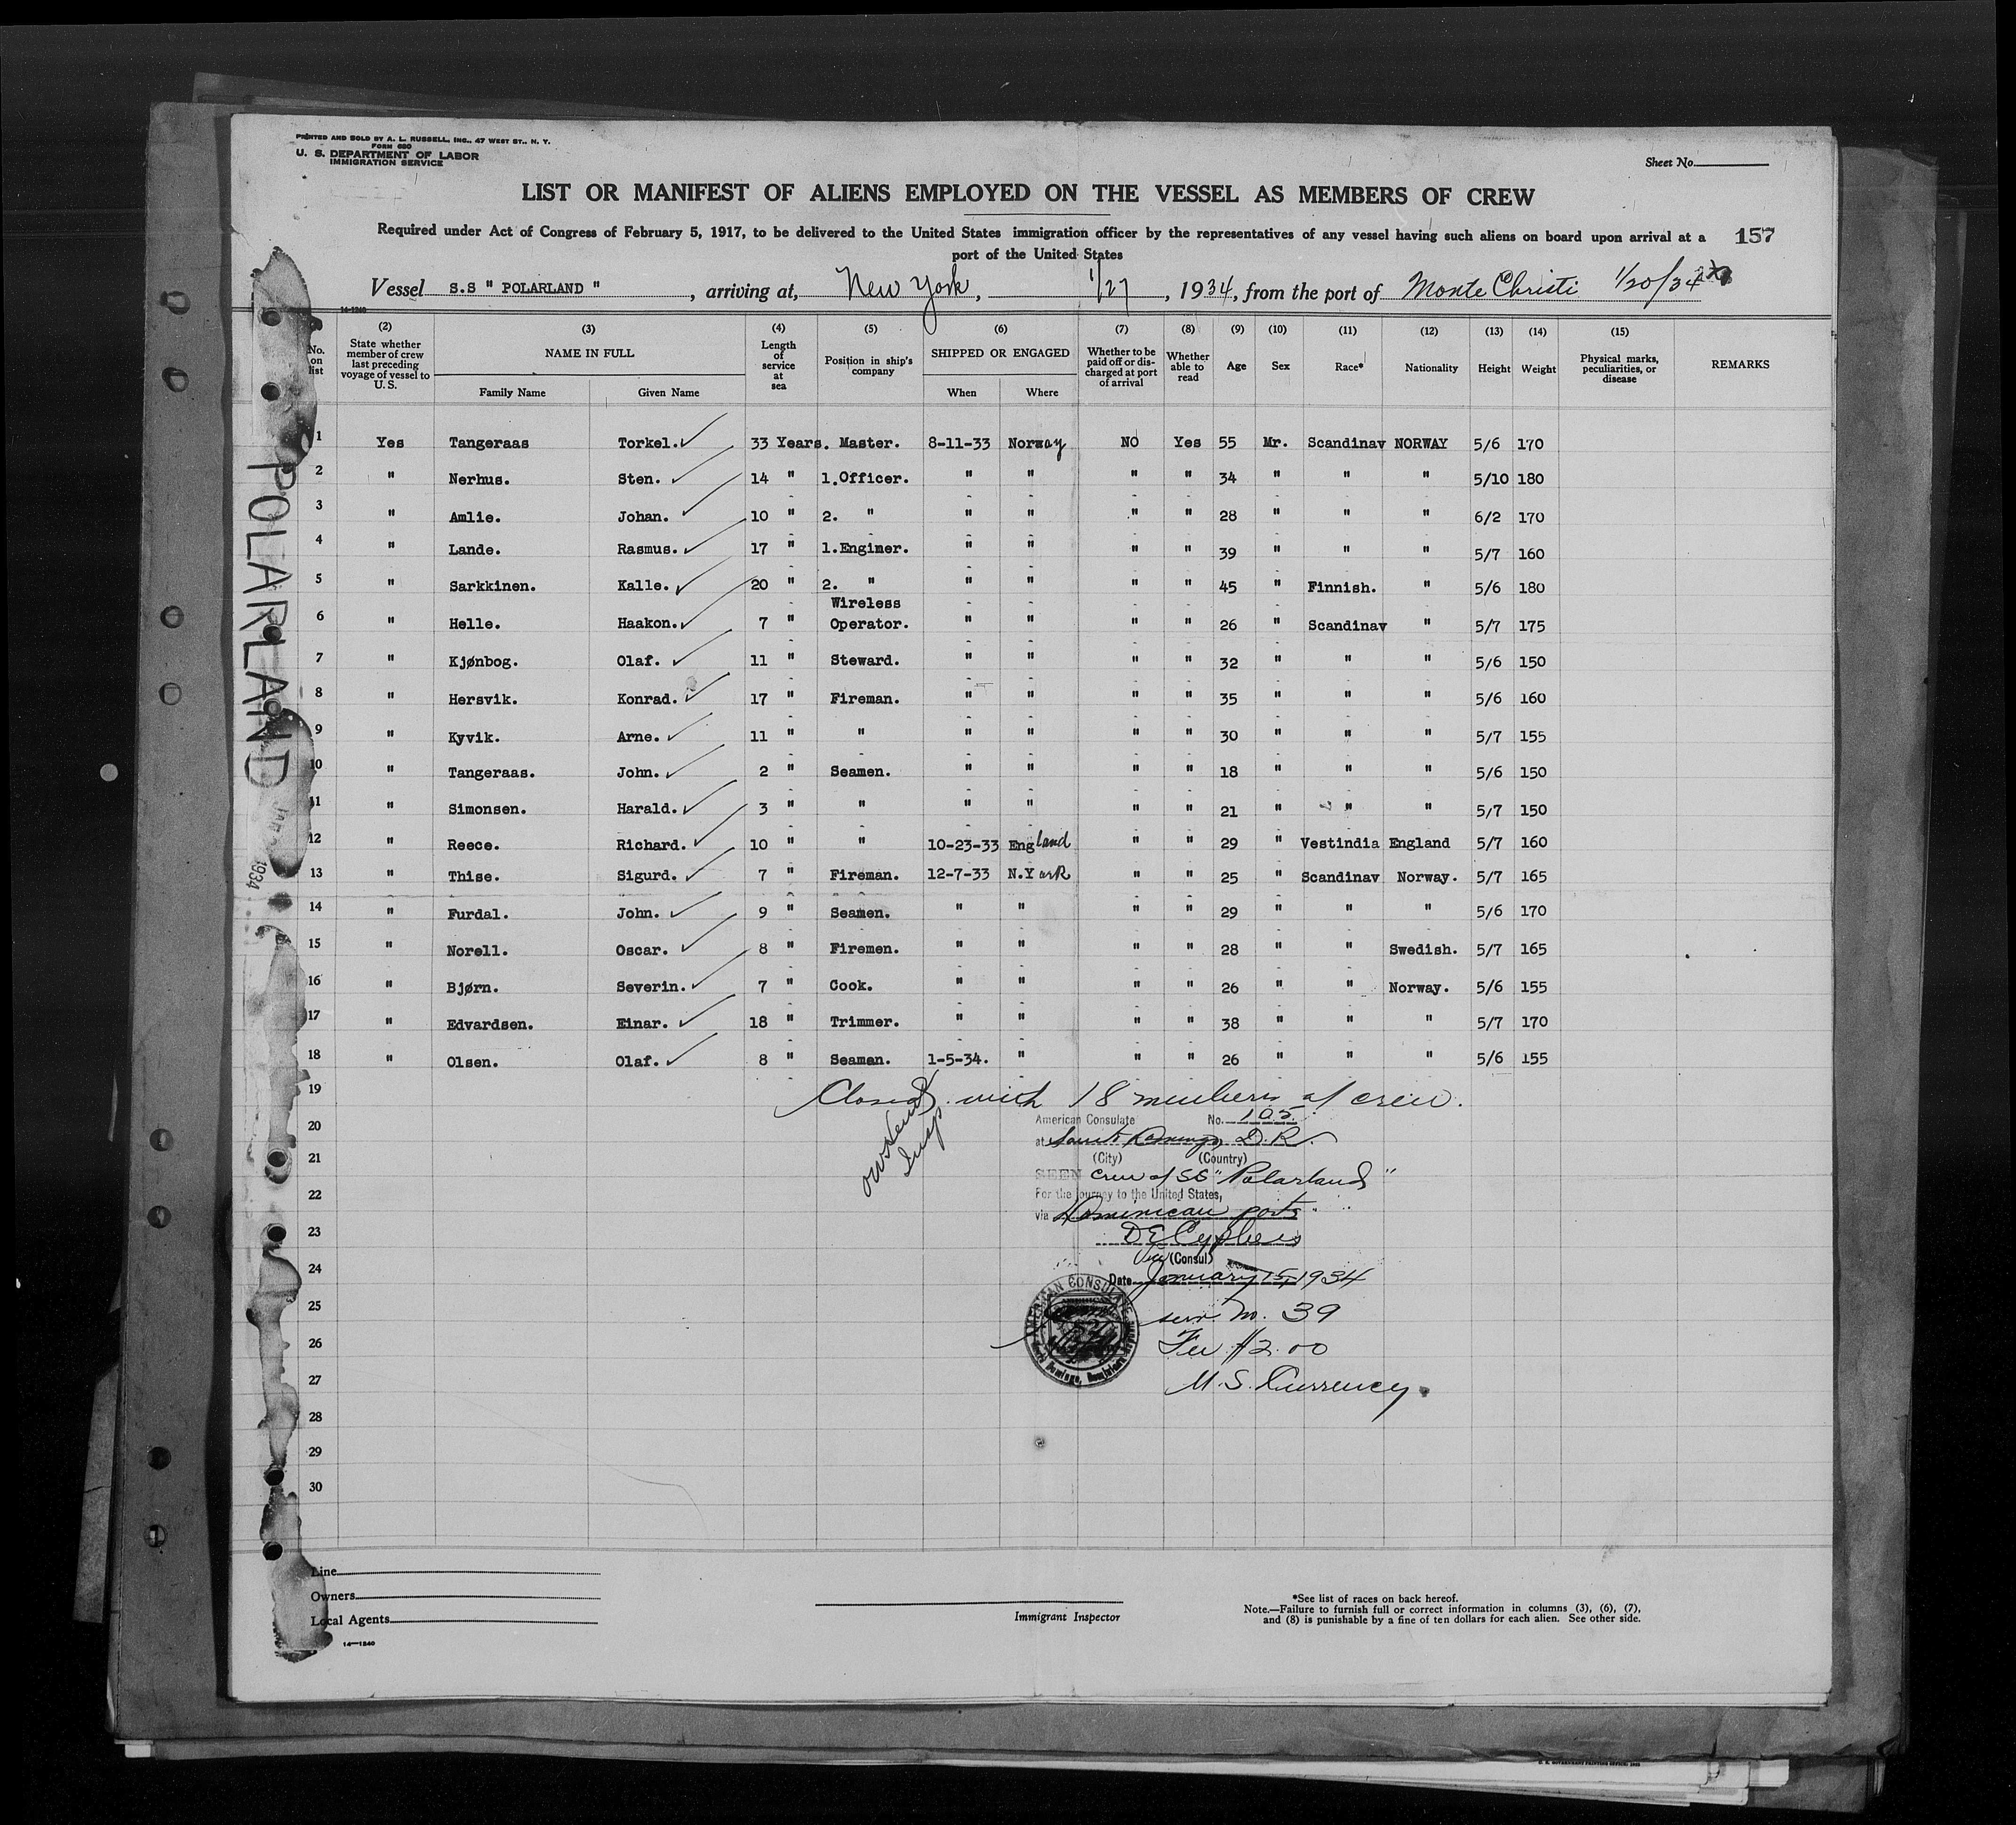 PRINTED AND SOLD BY A. L. RUSSELL, INC., 47 WEST ST., N. Y.
FORM 680
U. S. DEPARTMENT OF LABOR
IMMIGRATION SERVICE
Sheet No.
LIST OR MANIFEST OF ALIENS EMPLOYED ON THE VESSEL AS MEMBERS OF CREW
Required under Act of Congress of February 5, 1917, to be delivered to the United States immigration officer by the representatives of any vessel having such aliens on board upon arrival at a
port of the United States
157
Vessel S.S " POLARLAND ", arriving at, New York, 1/27, 1934, from the port of Monte Christi 1/20/34
14-1240
(2) (3) (4) (5) (6) (7) (8) (9) (10) (11) (12) (13) (14) (15)
No. on list
State whether member of crew last preceding voyage of vessel to U. S.
NAME IN FULL
Family Name
Given Name
Length of service at sea
Position in ship's company
SHIPPED OR ENGAGED
When
Where
Whether to be paid off or discharged at port of arrival
Whether able to read
Age
Sex
Race*
Nationality
Height
Weight
Physical marks, peculiarities, or disease
REMARKS
1 Yes Tangeraas Torkel. 33 Years. Master. 8-11-33 Norway NO Yes 55 Mr. Scandinav NORWAY 5/6 170
2 " Nerhus. Sten. 14 " 1.Officer. " " " " 34 " " " 5/10 180
3 " Amlie. Johan. 10 " 2. " " " " " 28 " " " 6/2 170
4 " Lande. Rasmus. 17 " 1.Enginer. " " " " 39 " " " 5/7 160
5 " Sarkkinen. Kalle. 20 " 2. " " " " " 45 " Finnish. " 5/6 180
6 " Helle. Haakon. 7 " Wireless Operator. " " " " 26 " Scandinav " 5/7 175
7 " Kjønbog. Olaf. 11 " Steward. " " " " 32 " " " 5/6 150
8 " Hersvik. Konrad. 17 " Fireman. " " " " 35 " " " 5/6 160
9 " Kyvik. Arne. 11 " " " " " " 30 " " " 5/7 155
10 " Tangeraas. John. 2 " Seamen. " " " " 18 " " " 5/6 150
11 " Simonsen. Harald. 3 " " " " " " 21 " " " 5/7 150
12 " Reece. Richard. 10 " " 10-23-33 England " " 29 " Vestindia England 5/7 160
13 " Thise. Sigurd. 7 " Fireman. 12-7-33 N.York " " 25 " Scandinav Norway. 5/7 165
14 " Furdal. John. 9 " Seamen. " " " " 29 " " " 5/6 170
15 " Norell. Oscar. 8 " Firemen. " " " " 28 " " Swedish. 5/7 165
16 " Bjørn. Severin. 7 " Cook. " " " " 26 " " Norway. 5/6 155
17 " Edvardsen. Einar. 18 " Trimmer. " " " " 38 " " " 5/7 170
18 " Olsen. Olaf. 8 " Seaman. 1-5-34. " " " 26 " " " 5/6 155
19
Closed with 18 members of crew.
20
American Consulate No. 105
at Santo Domingo, D.R.
21
(City) (Country)
SEEN Crew of SS "Polarland"
22
For the journey to the United States,
via Dominican ports
23
D E Cyphers
Vice (Consul)
24
Date January 15, 1934
25
serv. No. 39
26
Fee $2.00
27
U.S. Currency.
28
29
30
AMERICAN CONSULATE
POLARLAND
1934
Line
Owners
Local Agents
14-1240
Immigrant Inspector
*See list of races on back hereof.
Note.—Failure to furnish full or correct information in columns (3), (6), (7),
and (8) is punishable by a fine of ten dollars for each alien. See other side.